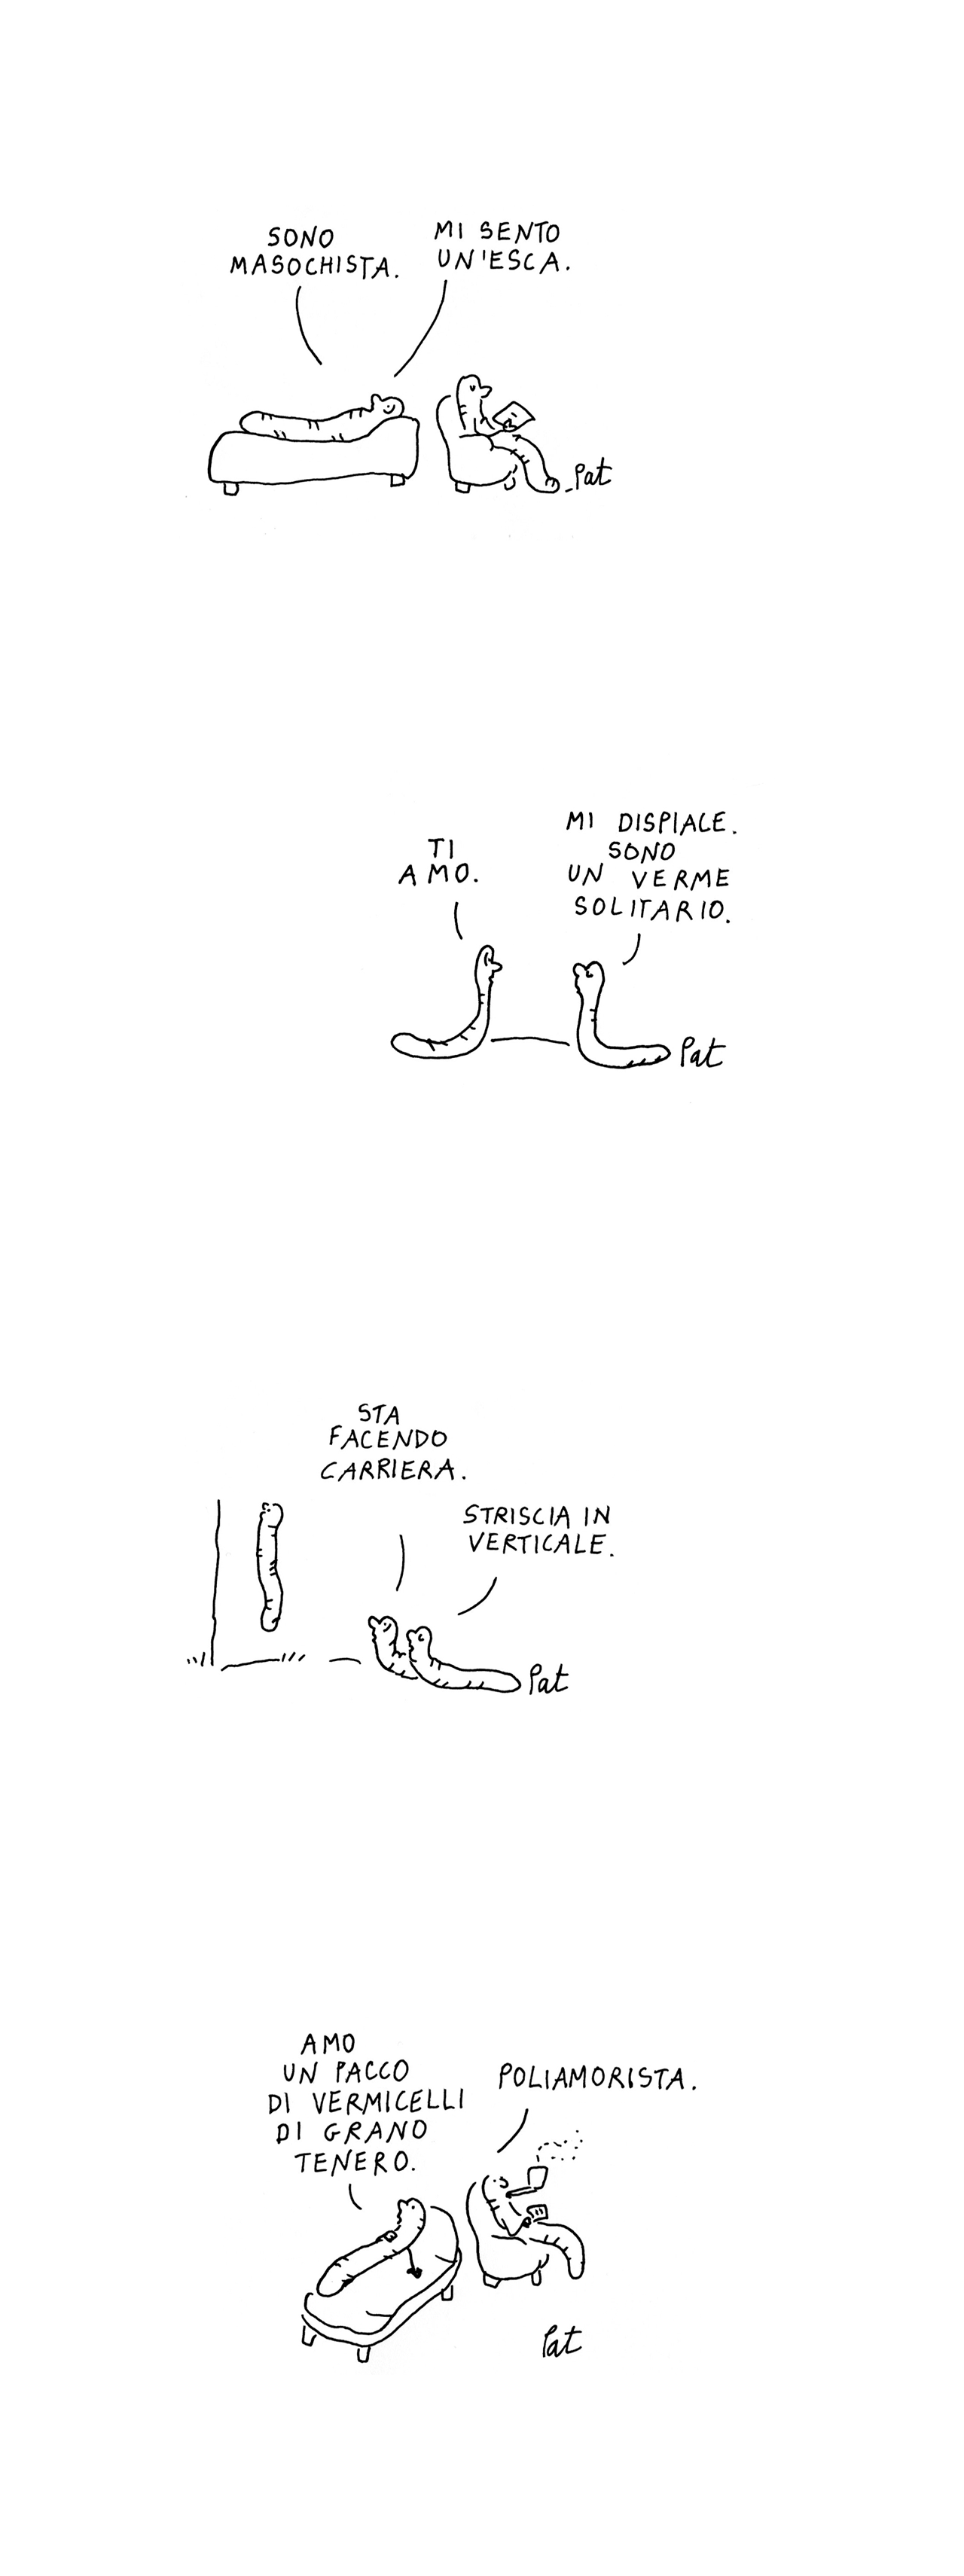 SONO
MASOCHISTA.
MI SENTO
UN'ESCA.
Pat
TI
AMO.
MI DISPIACE.
SONO
UN VERME
SOLITARIO.
Pat
STA
FACENDO
CARRIERA.
STRISCIA IN
VERTICALE.
Pat
AMO
UN PACCO
DI VERMICELLI
DI GRANO
TENERO.
POLIAMORISTA.
Pat